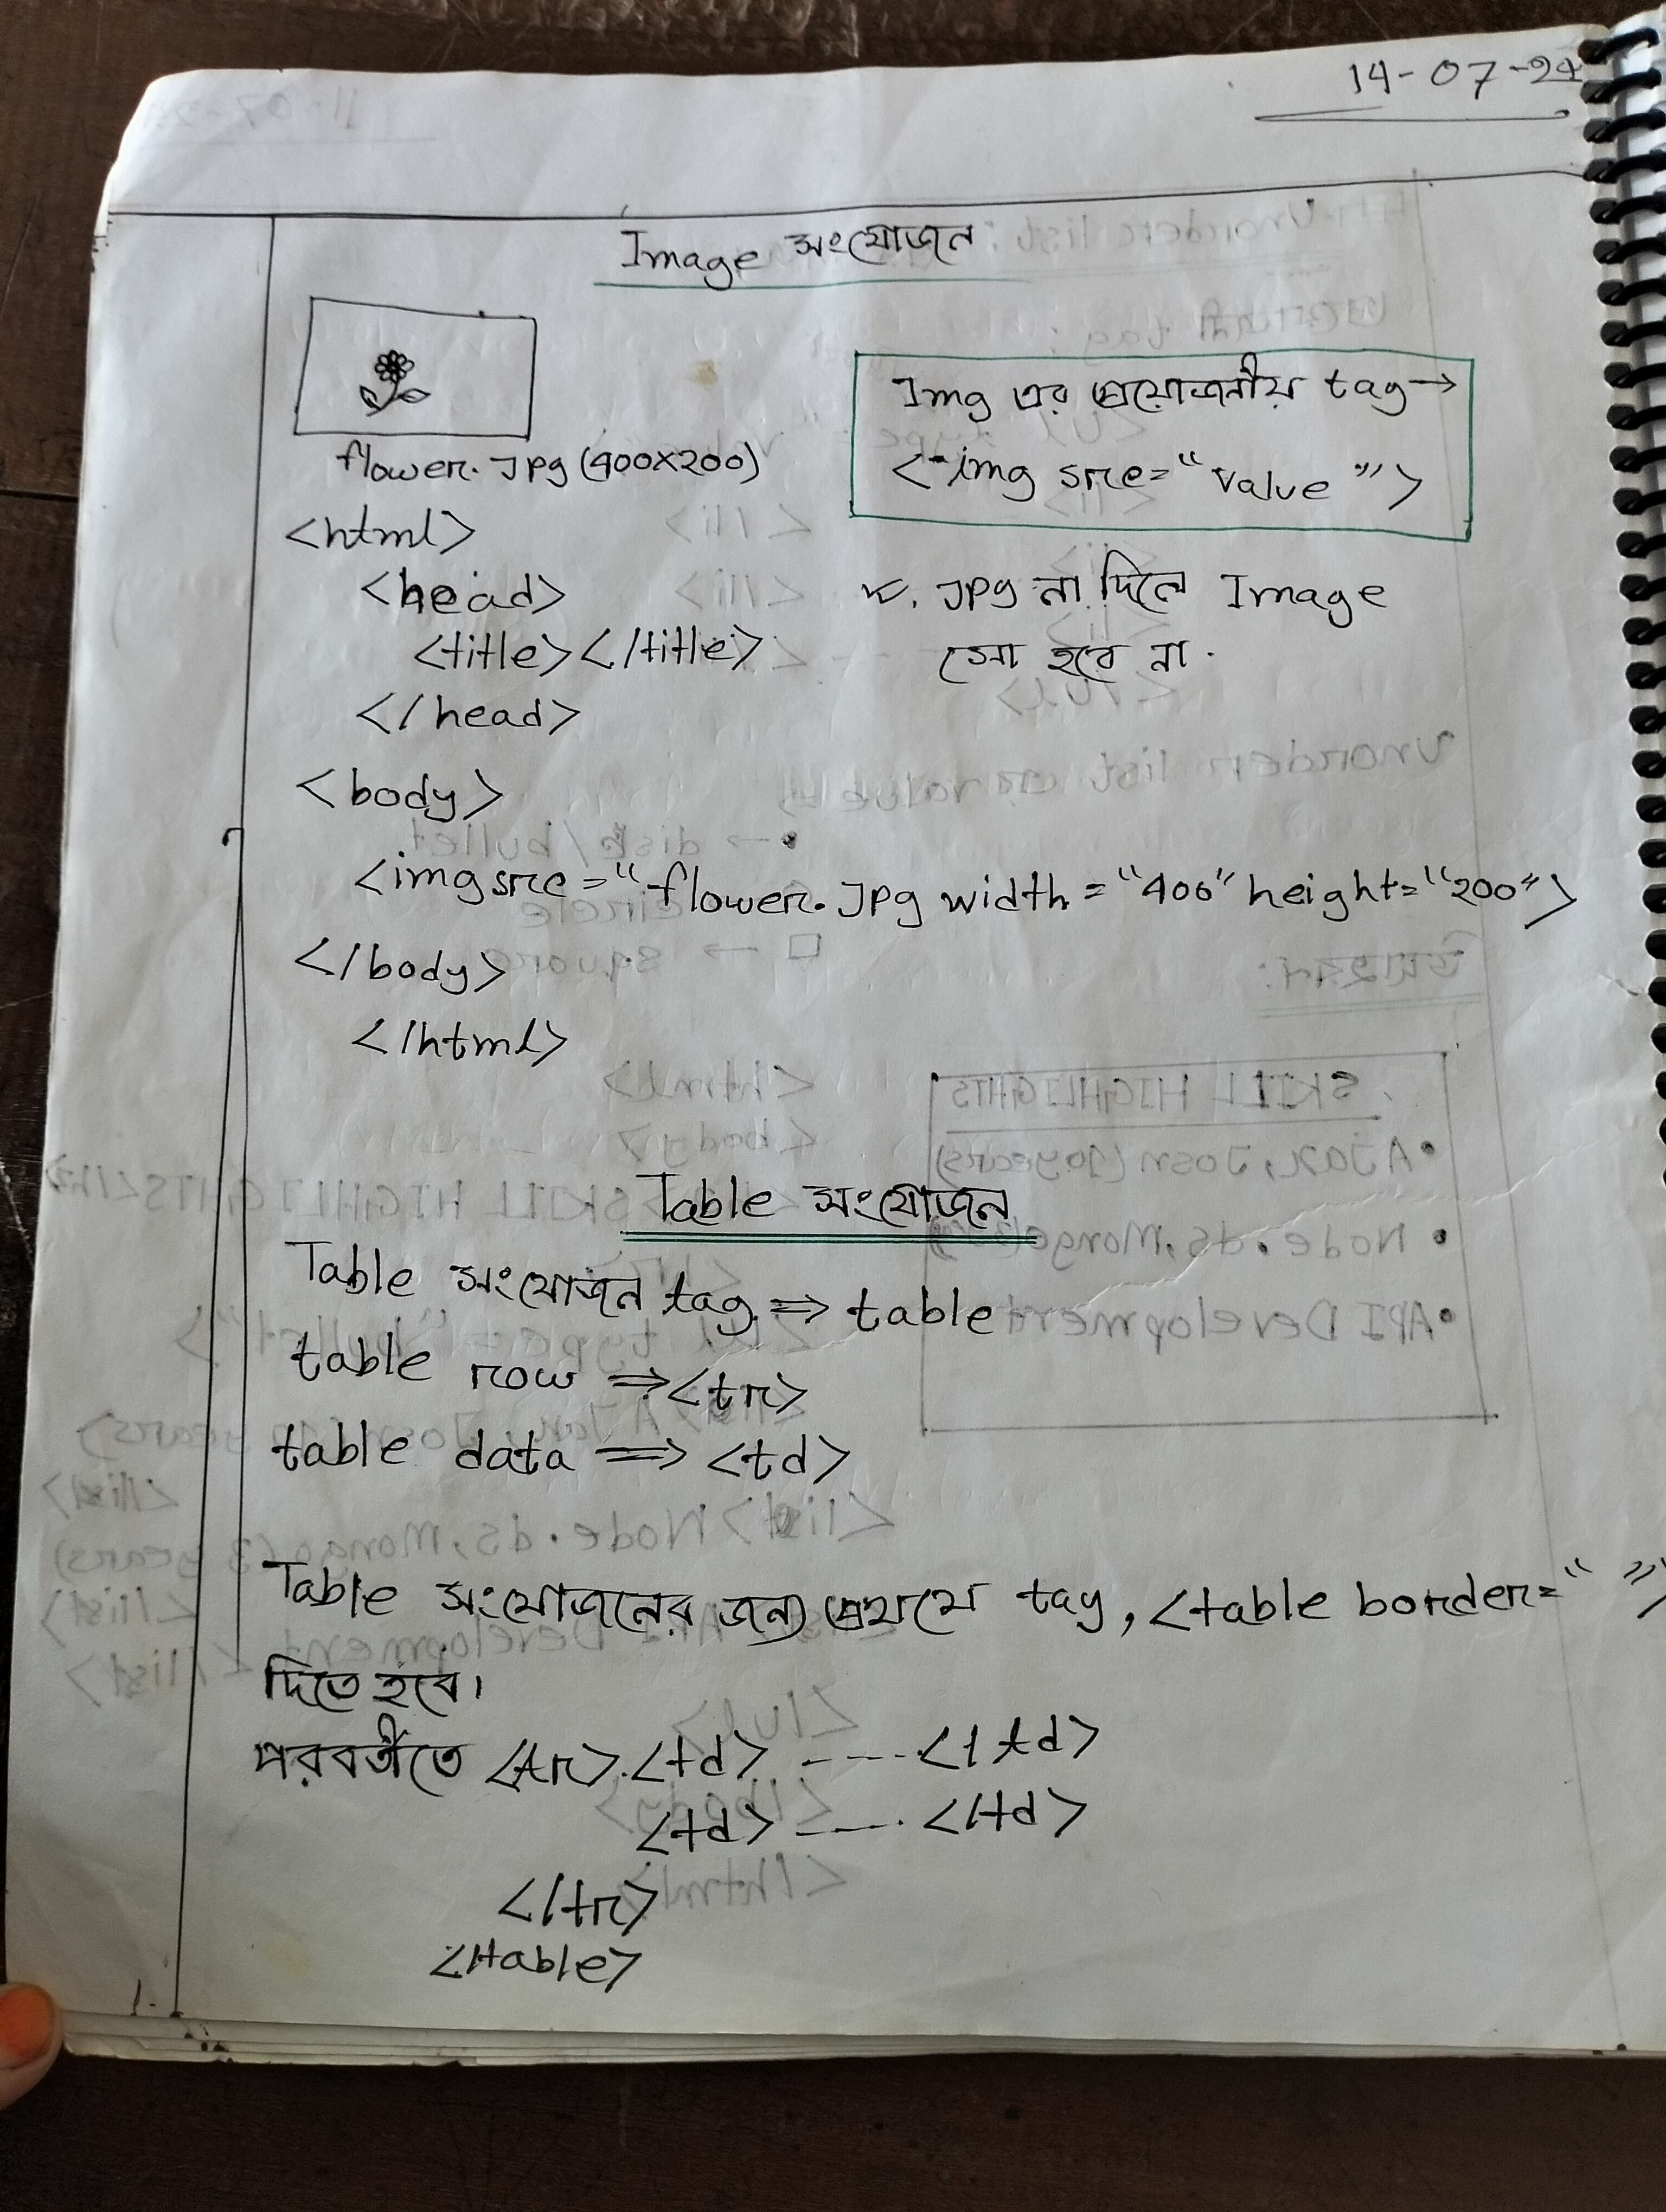 14-07-24
Image সংযোজন
flower.Jpg (400x200)
Img এর প্রয়োজনীয় tag→
<img src="value">
<html>
<head>
<title></title>
</head>
.Jpg না দিলে Image
সো হবে না.
<body>
<img src="flower.Jpg width="400" height="200">
</body>
</html>
Table সংযোজন
Table সংযোজন tag ⇒ table
table row ⇒ <tr>
table data ⇒ <td>
Table সংযোজনের জন্য প্রথমে tag, <table border=" ">
দিতে হবে।
পরবর্তীতে <tr>.<td> ---- </td>
<td> ---- </td>
</tr>
</table>